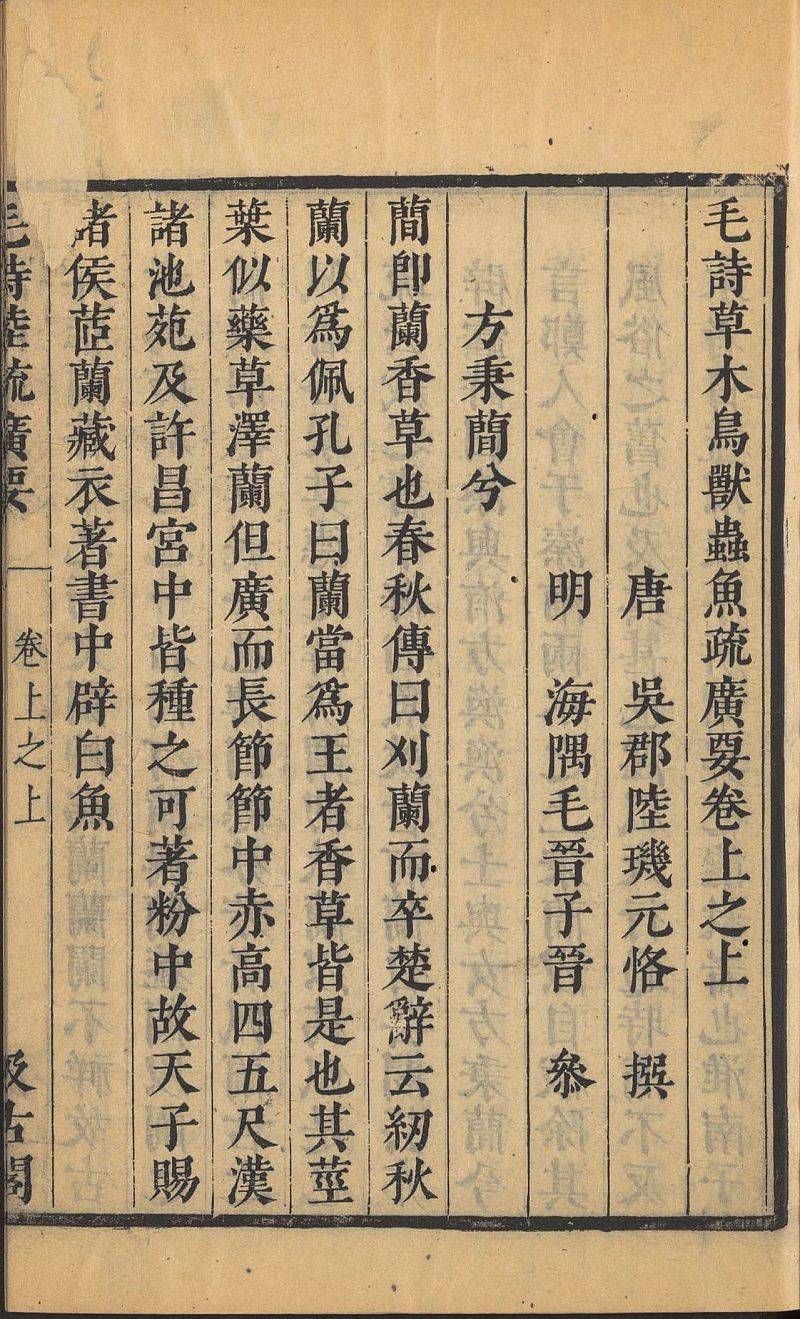 毛詩草木鳥獸蟲魚疏廣要卷上之上
唐 吳郡陸璣元恪 撰
明 海隅毛晉子晉 叅
方秉蕳兮
蕳卽蘭香草也春秋傳曰刈蘭而卒楚辭云紉秋
蘭以爲佩孔子曰蘭當爲王者香草皆是也其莖
葉似藥草澤蘭但廣而長節節中赤高四五尺漢
諸池苑及許昌宮中皆種之可著粉中故天子賜
諸侯茝蘭藏衣著書中辟白魚
毛詩陸疏廣要 卷上之上 汲古閣